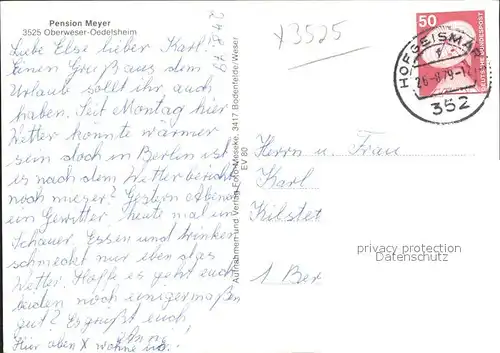 Pension Meyer
3525 Oberweser-Oedelsheim
24 8 79
x3525
Liebe Else lieber Karl!
Einen Gruß aus dem
Urlaube sollt ihr auch
haben. Seit Montag hier
Wetter konnte wärmer
sein doch in Berlin ist
es nach dem Wetterbericht
noch mieser? Gestern Abend
ein Gewitter heute mal ein
Schauer. Essen und trinken
schmeckt nur eben das
Wetter. Hoffe es geht euch
beiden noch einigermaßen
gut? Es grüßt euch
Hier oben X wohne ich.
Aufnahmen und Verlag Foto-Meseke, 3417 Bodenfelde/Weser
EV 80
50
DEUTSCHE BUNDESPOST
HOFGEISMAR
26.-8.79-12
352
Herrn u. Frau
Karl
Kilstet
1 Ber
privacy protection
Datenschutz